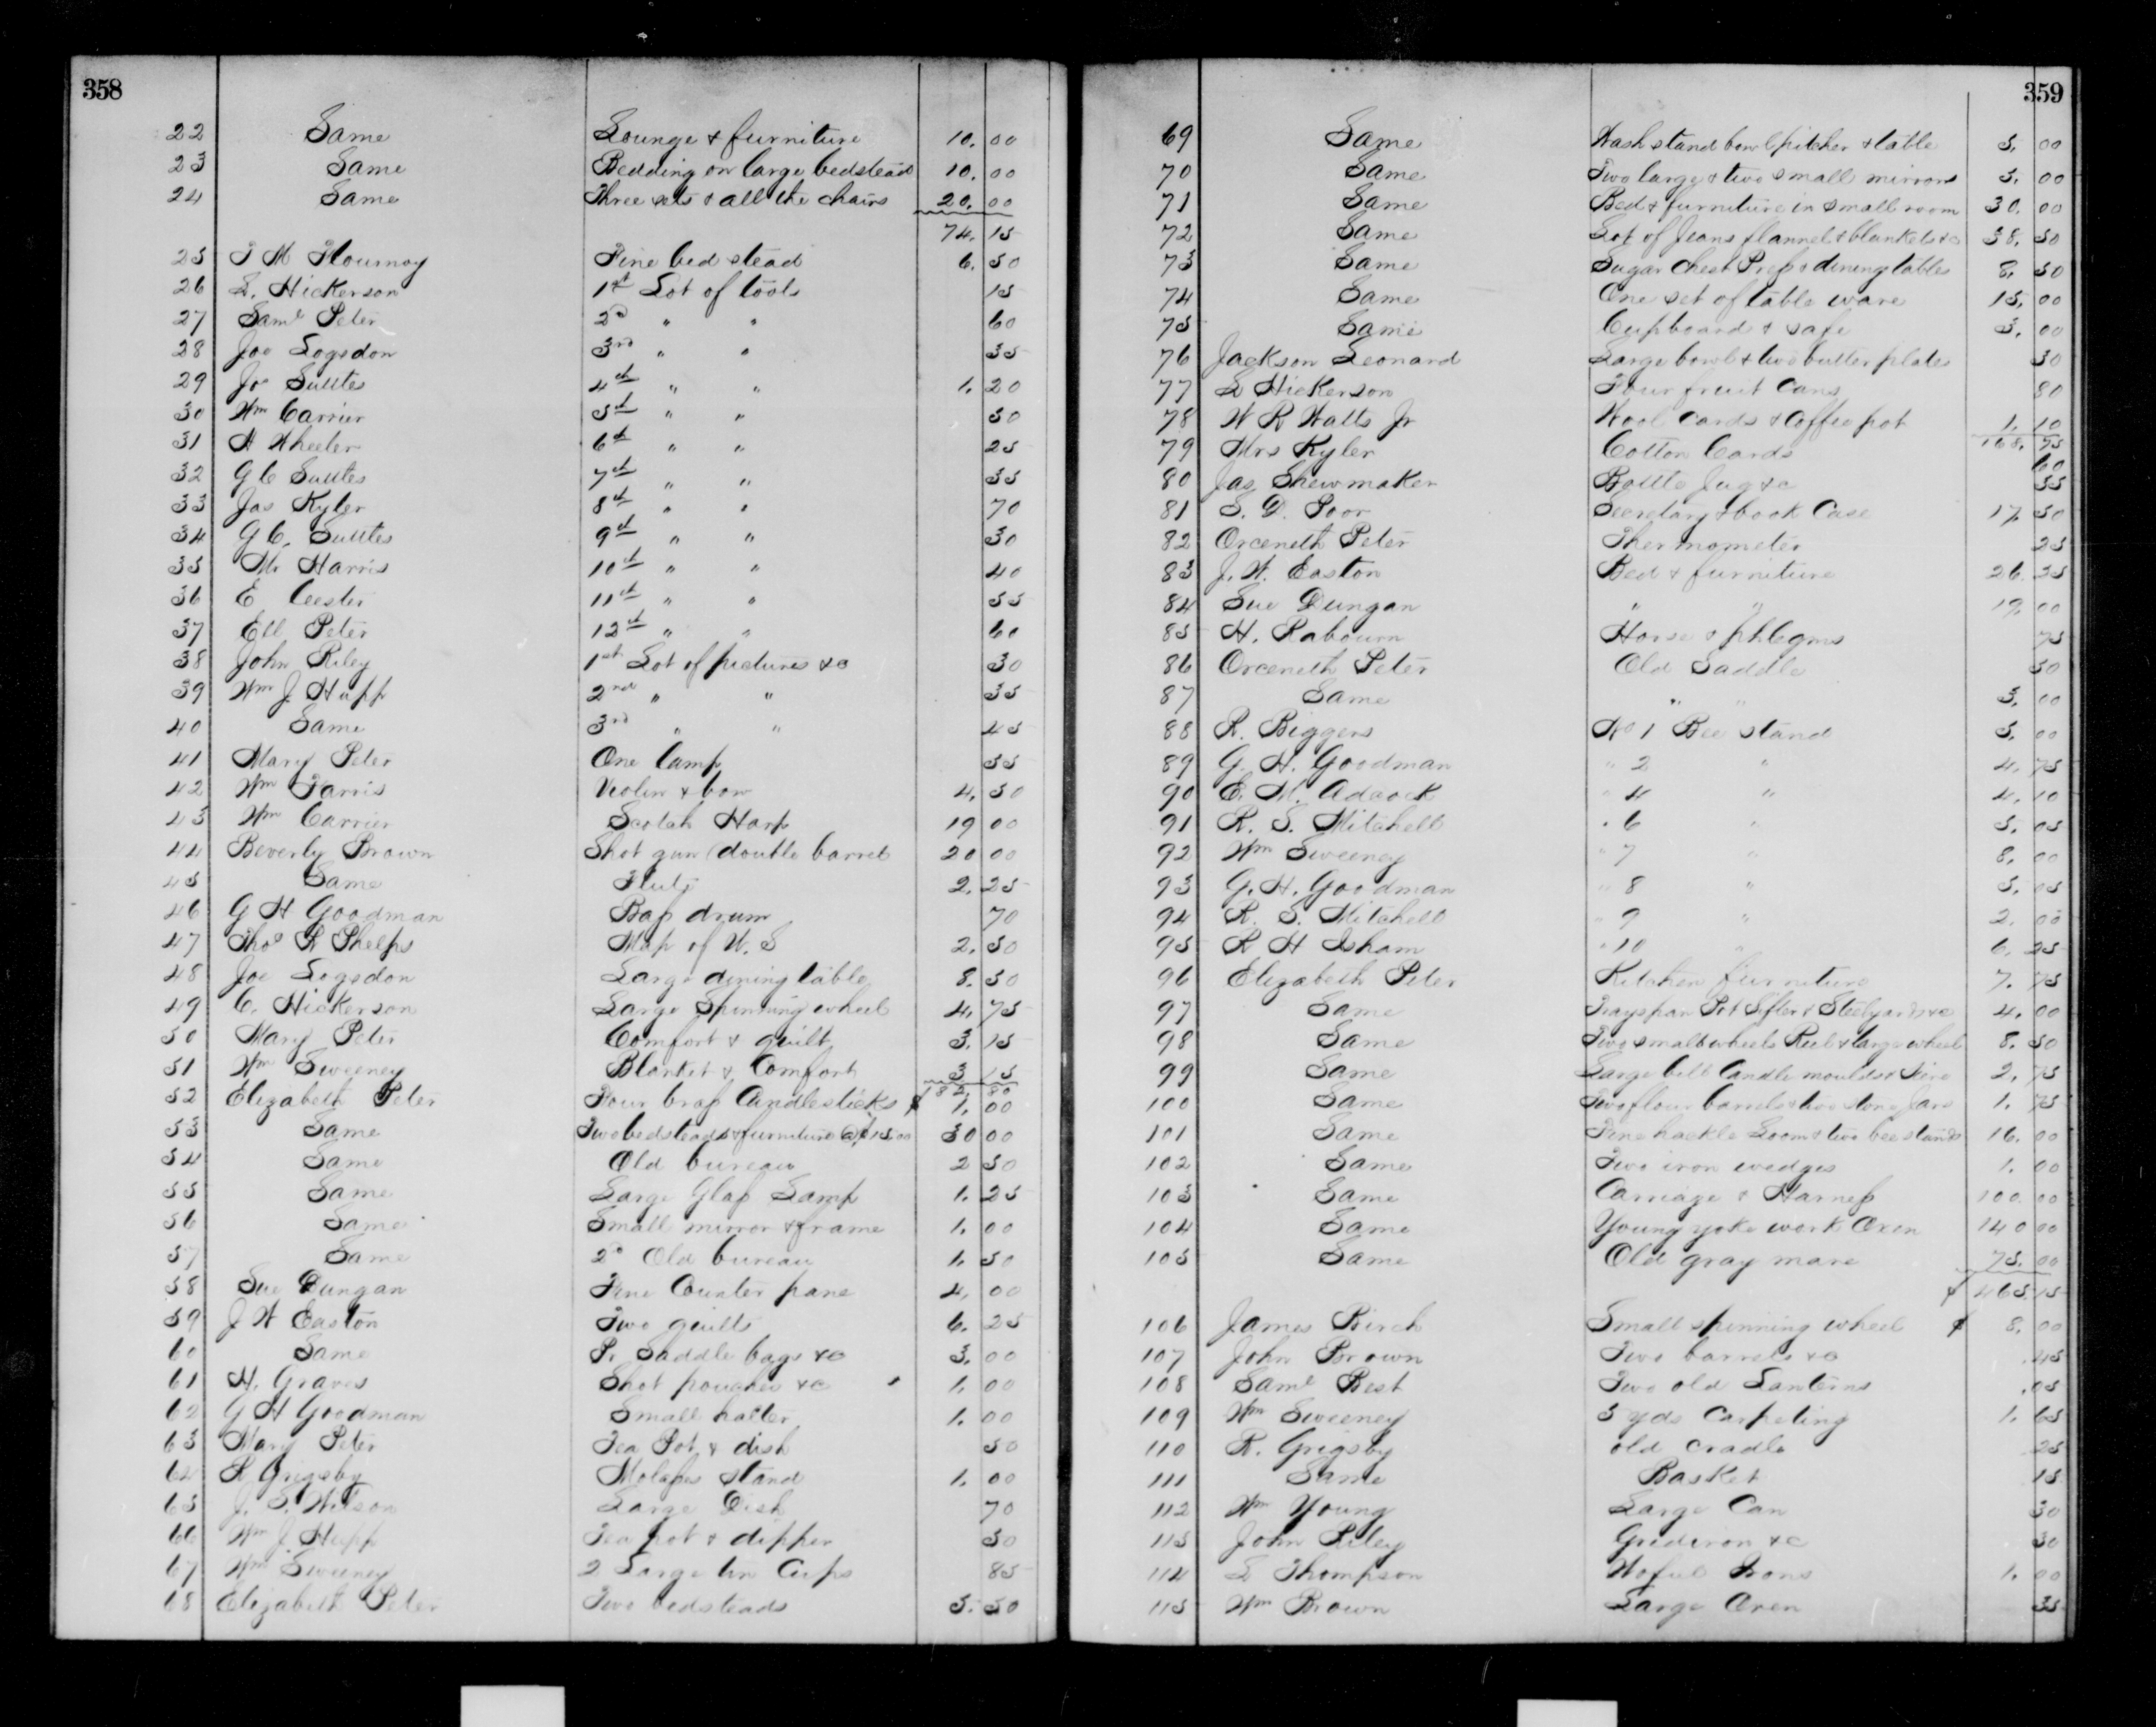 358
22 Same Lounge & furniture 10. 00
23 Same Bedding on large bedstead 10. 00
24 Same Three sets & all the chairs 20. 00
74. 15
25 T M Flournoy Fine bed stead 6. 50
26 L. Hickerson 1st Lot of tools 15
27 Saml Peter 2d " " 60
28 Joe Logsdon 3rd " " 35
29 Jo Suttes 4th " " 1. 20
30 Wm Carrier 5th " " 50
31 H Wheeler 6th " " 25
32 G C Suttes 7th " " 35
33 Jas Kyler 8th " " 70
34 G C. Suttes 9th " " 30
35 Mr Harris 10th " " 40
36 E Cester 11th " " 55
37 Ell Peter 12th " " 60
38 John Riley 1st Lot of pictures &c 30
39 Wm J. Hupp 2nd " " 35
40 Same 3rd " " 45
41 Mary Peter One Lamp 55
42 Wm Farris Violin & bow 4. 50
43 Wm Carrier Scotch Harp 19 00
44 Beverly Brown Shot gun (double barrel 20 00
45 Same Flute 2. 25
46 G H Goodman Bass drum 70
47 Thos R Phelps Map of U. S 2. 50
48 Joe Logsdon Large dining table 8. 50
49 C. Hickerson Large Spinning wheel 4. 75
50 Mary Peter Comfort & quilt 3. 15
51 Wm Sweeney Blanket & Comfort 3 15
$ 82. 80
52 Elizabeth Peter Four brass Candlesticks $ 1. 00
53 Same Two bedsteads & furniture @ $15.00 30 00
54 Same Old bureau 2 50
55 Same Large Glass Lamp 1. 25
56 Same Small mirror & frame 1. 00
57 Same 2d Old bureau 1. 50
58 Sue Dungan Fine Counter pane 4. 00
59 J W Easton Two quilts 6. 25
60 Same Pr Saddle bags &c 3. 00
61 H. Graves Shot pouches &c 1. 00
62 G H Goodman Small halter 1. 00
63 Mary Peter Tea Pot & dish 50
64 R Grigsby Molasses stand 1. 00
65 J. S. Wilson Large Dish 70
66 Wm J. Hupp Tea pot & dipper 50
67 Wm Sweeney 2 Large tin Cups 85
68 Elizabeth Peter Two bedsteads 5. 50
359
69 Same Wash stand bowl pitcher & table 5. 00
70 Same Two large & two small mirrors 5. 00
71 Same Bed & furniture in small room 30. 00
72 Same Lot of Jeans flannel & blankets &c 38. 50
73 Same Sugar Chest Press & dining tables 8. 50
74 Same One set of table ware 15. 00
75 Same Cupboard & safe 5. 00
76 Jackson Leonard Large bowl & two butter plates 50
77 L Hickerson Four fruit Cans 80
78 W R Watts Jr Wool Cards & Coffee pot 1. 10
168. 75
79 Mrs Kyler Cotton Cards 60
80 Jas Shewmaker Bottle Jug &c 55
81 S. D. Poor Secretary & book Case 17. 50
82 Orceneth Peter Thermometer 25
83 J. W. Easton Bed & furniture 26. 35
84 Sue Dungan " " 19. 00
85 H. Rabourn Horse & phlegms 75
86 Orceneth Peter Old Saddle 50
87 Same " " 5. 00
88 R. Biggers No 1 Bee stand 5. 00
89 G. H. Goodman " 2 " 4. 75
90 E. M. Adcock " 4 " 4. 10
91 R. S. Mitchell " 6 " 5. 05
92 Wm Sweeney " 7 " 8. 00
93 G. H. Goodman " 8 " 5. 05
94 R. S. Mitchell " 9 " 2. 00
95 R H Isham " 10 " 6. 25
96 Elizabeth Peter Kitchen furniture 7. 75
97 Same Trays pan Pot Sifter & Steelyards &c 4. 00
98 Same Two small wheels Reel & large wheel 8. 50
99 Same Large bell Candle moulds & 2. 75
100 Same Two flour barrels & two stone Jars 1. 75
101 Same Fine hackle Loom & two bee stands 16. 00
102 Same Two iron wedges 1. 00
103 Same Carriage & Harness 100. 00
104 Same Young yoke work Oxen 140 00
105 Same Old gray mare 75. 00
$ 465. 15
106 James Birch Small spinning wheel $ 8. 00
107 John Brown Two barrels &c .45
108 Saml Best Two old Lanterns .05
109 Wm Sweeney 5 yds Carpeting 1. 65
110 R. Grigsby old cradle 25
111 Same Basket 15
112 Wm Young Large Can 30
113 John Riley Gridiron &c 50
114 L Thompson Waful Irons 1. 00
115 Wm Brown Large Oven 35